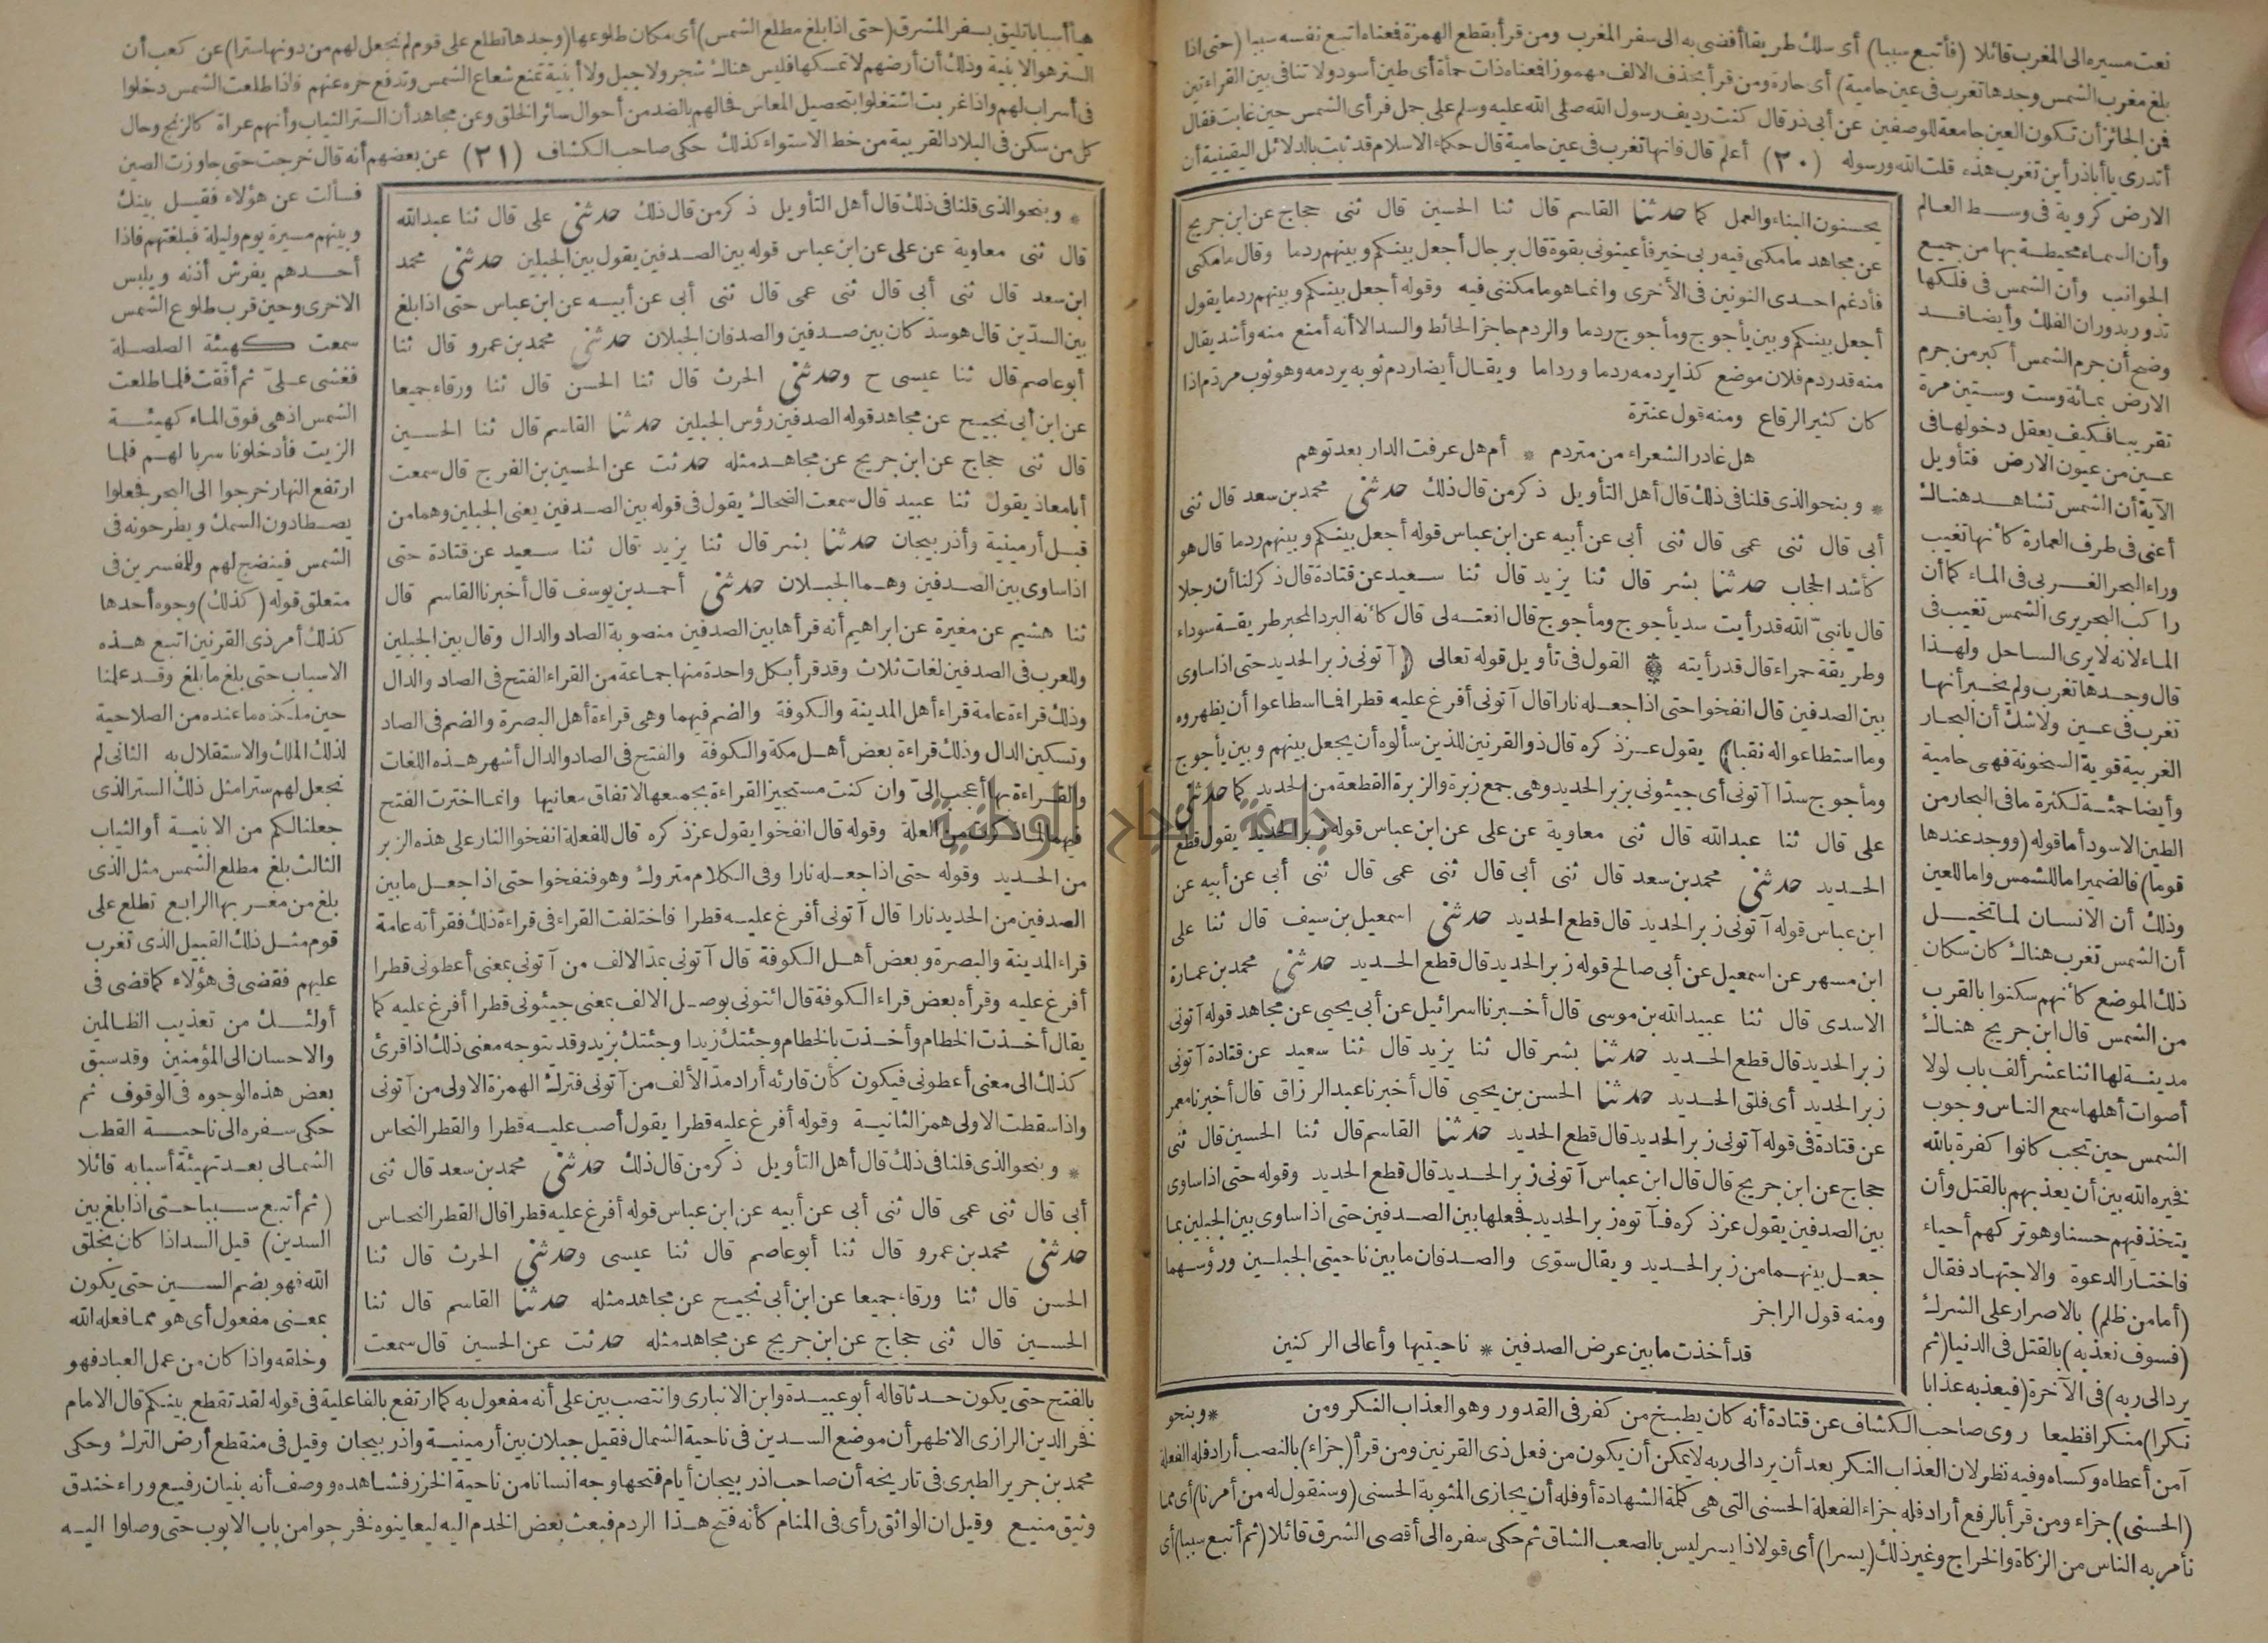 نعت مسيره الى المغرب قائلا (فأتبع سببا) أى سلك طريقا أفضى به الى سفر المغرب ومن قرأ بقطع الهمزة فمعناه اتبع نفسه سببا (حتى اذا
بلغ مغرب الشمس وجدها تغرب فى عين حامية) أى حارة ومن قرأ بحذف الالف مهموزا فمعناه ذات حمأة أى طين أسود ولا تنافى بين القراءتين
فمن الجائز أن تكون العين جامعة للوصفين عن أبى ذر قال كنت رديف رسول الله صلى الله عليه وسلم على جمل فرأى الشمس حين غابت فقال
أتدرى يا أباذر أين تغرب هذه قلت الله ورسوله (٢٠) أعلم قال فانها تغرب فى عين حامية قال حكماء الاسلام قد ثبت بالدلائل اليقينية أن
الارض كروية فى وسط العالم
وأن السماء محيطة بها من جميع
الجوانب وأن الشمس فى فلكها
تدور بدوران الفلك وأيضا قد
وضح أن جرم الشمس أكبر من جرم
الارض بمائة وست وستين مرة
تقريبا فكيف يعقل دخولها فى
عين من عيون الارض فتأويل
الآية أن الشمس تشاهد هناك
أعنى فى طرف العمارة كأنها تغيب
وراء البحر الغربى فى الماء كما أن
راكب البحر يرى الشمس تغيب فى
الماء لانه لا يرى الساحل ولهذا
قال وجدها تغرب ولم يخبر أنها
تغرب فى عين ولا شك أن البحار
الغربية قوية السخونة فهى حامية
وأيضا حمئة لكثرة ما فى البحار من
الطين الاسود أما قوله (ووجد عندها
قوما) فالضمير اما للشمس واما للعين
وذلك أن الانسان لما تخيل
أن الشمس تغرب هناك كان سكان
ذلك الموضع كأنهم سكنوا بالقرب
من الشمس قال ابن جريج هناك
مدينة لها اثنا عشر ألف باب لولا
أصوات أهلها سمع الناس وجوب
الشمس حين تجب كانوا كفرة بالله
فخيره الله بين أن يعذبهم بالقتل وأن
يتخذ فيهم حسنا وهو تركهم أحياء
فاختار الدعوة والاجتهاد فقال
(أما من ظلم) بالاصرار على الشرك
(فسوف نعذبه) بالقتل فى الدنيا (ثم
يرد الى ربه) فى الآخرة (فيعذبه عذابا
يحسنون البناء والعمل كما حدثنا القاسم قال ثنا الحسين قال ثنى حجاج عن ابن جريج
عن مجاهد ما مكنى فيه ربى خير فأعينونى بقوة قال برجال أجعل بينكم وبينهم ردما وقال ما مكنى
فأدغم احدى النونين فى الأخرى وانما هو ما مكننى فيه وقوله أجعل بينكم وبينهم ردما يقول
أجعل بينكم وبين يأجوج ومأجوج ردما والردم حاجز الحائط والسد الا أنه أمنع منه وأشد يقال
منه قد ردم فلان موضع كذا يردمه ردما ورداما ويقال أيضا ردم ثوبه يردمه وهو ثوب مردم اذا
كان كثير الرقاع ومنه قول عنترة
هل غادر الشعراء من متردم * أم هل عرفت الدار بعد توهم
* وبنحو الذى قلنا فى ذلك قال أهل التأويل ذكر من قال ذلك حدثنى محمد بن سعد قال ثنى
أبى قال ثنى عمى قال ثنى أبى عن أبيه عن ابن عباس قوله أجعل بينكم وبينهم ردما قال هو
كأشد الحجاب حدثنا بشر قال ثنا يزيد قال ثنا سعيد عن قتادة قال ذكر لنا أن رجلا
قال يا نبىّ الله قد رأيت سد يأجوج ومأجوج قال انعته لى قال كأنه البرد المحبر طريقة سوداء
وطريقة حمراء قال قد رأيته ۞ القول فى تأويل قوله تعالى (آتونى زبر الحديد حتى اذا ساوى
بين الصدفين قال انفخوا حتى اذا جعله نارا قال آتونى أفرغ عليه قطرا فما اسطاعوا أن يظهروه
وما استطاعوا له نقبا) يقول عز ذكره قال ذو القرنين للذين سألوه أن يجعل بينهم وبين يأجوج
ومأجوج سدّا آتونى أى جيئونى بزبر الحديد وهى جمع زبرة والزبرة القطعة من الحديد كما حدثنى
على قال ثنا عبد الله قال ثنى معاوية عن على عن ابن عباس قوله زبر الحديد يقول قطع
الحديد حدثنى محمد بن سعد قال ثنى أبى قال ثنى عمى قال ثنى أبى عن أبيه عن
ابن عباس قوله آتونى زبر الحديد قال قطع الحديد حدثنى اسمعيل بن سيف قال ثنا على
ابن مسهر عن اسمعيل عن أبى صالح قوله زبر الحديد قال قطع الحديد حدثنى محمد بن عمارة
الاسدى قال ثنا عبيد الله بن موسى قال أخبرنا اسرائيل عن أبى يحيى عن مجاهد قوله آتونى
زبر الحديد قال قطع الحديد حدثنا بشر قال ثنا يزيد قال ثنا سعيد عن قتادة آتونى
زبر الحديد أى فلق الحديد حدثنا الحسن بن يحيى قال أخبرنا عبد الرزاق قال أخبرنا معمر
عن قتادة فى قوله آتونى زبر الحديد قال قطع الحديد حدثنا القاسم قال ثنا الحسين قال ثنى
حجاج عن ابن جريج قال قال ابن عباس آتونى زبر الحديد قال قطع الحديد وقوله حتى اذا ساوى
بين الصدفين يقول عز ذكره فآتوه زبر الحديد فجعلها بين الصدفين حتى اذا ساوى بين الجبلين بما
جعل بينهما من زبر الحديد ويقال سوّى والصدفان ما بين ناحيتى الجبلين ورؤسهما
ومنه قول الراجز
قد أخذت ما بين عرض الصدفين * ناحيتيها وأعالى الركنين
نكرا) منكرا فظيعا روى صاحب الكشاف عن قتادة أنه كان يطبخ من كفر فى القدور وهو العذاب النكر ومن * وبنحو
آمن أعطاه وكساه وفيه نظر لان العذاب النكر بعد أن يرد الى ربه لا يمكن أن يكون من فعل ذى القرنين ومن قرأ (جزاء) بالنصب أراد فله الفعلة
(الحسنى) جزاء ومن قرأ بالرفع أراد فله جزاء الفعلة الحسنى التى هى كلمة الشهادة أو فله أن يجازى المثوبة الحسنى (وسنقول له من أمرنا) أى مما
نأمر به الناس من الزكاة والخراج وغير ذلك (يسرا) أى قولا ذا يسر ليس بالصعب الشاق ثم حكى سفره الى أقصى الشرق قائلا (ثم أتبع سببا) أى
هيأ أسبابا تليق بسفر المشرق (حتى اذا بلغ مطلع الشمس) أى مكان طلوعها (وجدها تطلع على قوم لم نجعل لهم من دونها سترا) عن كعب أن
الستر هو الابنية وذلك أن أرضهم لا تمسكها فليس هناك شجر ولا جبل ولا أبنية تمنع شعاع الشمس وتدفع حره عنهم فاذا طلعت الشمس دخلوا
فى أسراب لهم واذا غربت اشتغلوا بتحصيل المعاش فحالهم بالضد من أحوال سائر الخلق وعن مجاهد أن الستر الثياب وأنهم عراة كالزنج وحال
كل من سكن فى البلاد القريبة من خط الاستواء كذلك حكى صاحب الكشاف (٢١) عن بعضهم أنه قال خرجت حتى جاوزت الصين
* وبنحو الذى قلنا فى ذلك قال أهل التأويل ذكر من قال ذلك حدثنى على قال ثنا عبد الله
قال ثنى معاوية عن على عن ابن عباس قوله بين الصدفين يقول بين الجبلين حدثنى محمد
ابن سعد قال ثنى أبى قال ثنى عمى قال ثنى أبى عن أبيه عن ابن عباس حتى اذا بلغ
بين السدّين قال هو سدّ كان بين صدفين والصدفان الجبلان حدثنى محمد بن عمرو قال ثنا
أبو عاصم قال ثنا عيسى ح وحدثنى الحرث قال ثنا الحسن قال ثنا ورقاء جميعا
عن ابن أبى نجيح عن مجاهد قوله الصدفين رؤس الجبلين حدثنا القاسم قال ثنا الحسين
قال ثنى حجاج عن ابن جريج عن مجاهد مثله حدثت عن الحسين بن الفرج قال سمعت
أبا معاذ يقول ثنا عبيد قال سمعت الضحاك يقول فى قوله بين الصدفين يعنى الجبلين وهما من
قبل أرمينية وأذربيجان حدثنا بشر قال ثنا يزيد قال ثنا سعيد عن قتادة حتى
اذا ساوى بين الصدفين وهما الجبلان حدثنى أحمد بن يوسف قال أخبرنا القاسم قال
ثنا هشيم عن مغيرة عن ابراهيم أنه قرأها بين الصدفين منصوبة الصاد والدال وقال بين الجبلين
وللعرب فى الصدفين لغات ثلاث وقد قرأ بكل واحدة منها جماعة من القراء الفتح فى الصاد والدال
وذلك قراءة عامة قراء أهل المدينة والكوفة والضم فيهما وهى قراءة أهل البصرة والضم فى الصاد
وتسكين الدال وذلك قراءة بعض أهل مكة والكوفة والفتح فى الصاد والدال أشهر هذه اللغات
والقراءة بها أعجب الىّ وان كنت مستجيزا القراءة بجميعها لاتفاق معانيها وانما اخترت الفتح
فيهما لما ذكرت من العلة وقوله قال انفخوا يقول عز ذكره قال للفعلة انفخوا النار على هذه الزبر
من الحديد وقوله حتى اذا جعله نارا وفى الكلام متروك وهو فنفخوا حتى اذا جعل ما بين
الصدفين من الحديد نارا قال آتونى أفرغ عليه قطرا فاختلفت القراء فى قراءة ذلك فقرأته عامة
قراء المدينة والبصرة وبعض أهل الكوفة قال آتونى بمد الالف من آتونى بمعنى أعطونى قطرا
أفرغ عليه وقرأه بعض قراء الكوفة قال ائتونى بوصل الالف بمعنى جيئونى قطرا أفرغ عليه كما
يقال أخذت الخطام وأخذت بالخطام وجئتك زيدا وجئتك بزيد وقد يتوجه معنى ذلك اذا قرئ
كذلك الى معنى أعطونى فيكون كأن قارئه أراد مدّ الألف من آتونى فترك الهمزة الاولى من آتونى
واذا سقطت الاولى همز الثانية وقوله أفرغ عليه قطرا يقول أصب عليه قطرا والقطر النحاس
* وبنحو الذى قلنا فى ذلك قال أهل التأويل ذكر من قال ذلك حدثنى محمد بن سعد قال ثنى
أبى قال ثنى عمى قال ثنى أبى عن أبيه عن ابن عباس قوله أفرغ عليه قطرا قال القطر النحاس
حدثنى محمد بن عمرو قال ثنا أبو عاصم قال ثنا عيسى وحدثنى الحرث قال ثنا
الحسن قال ثنا ورقاء جميعا عن ابن أبى نجيح عن مجاهد مثله حدثنا القاسم قال ثنا
الحسين قال ثنى حجاج عن ابن جريج عن مجاهد مثله حدثت عن الحسين قال سمعت
فسألت عن هؤلاء فقيل بينك
وبينهم مسيرة يوم وليلة فبلغتهم فاذا
أحدهم يفرش أذنه ويلبس
الاخرى وحين قرب طلوع الشمس
سمعت كهيئة الصلصلة
فغشى علىّ ثم أفقت فلما طلعت
الشمس اذ هى فوق الماء كهيئة
الزيت فأدخلونا سربا لهم فلما
ارتفع النهار خرجوا الى البحر فجعلوا
يصطادون السمك ويطرحونه فى
الشمس فينضج لهم وللمفسرين فى
متعلق قوله (كذلك) وجوه أحدها
كذلك أمر ذى القرنين اتبع هذه
الاسباب حتى بلغ ما بلغ وقد علمنا
حين ملكناه ما عنده من الصلاحية
لذلك الملك والاستقلال به الثانى لم
نجعل لهم سترا مثل ذلك الستر الذى
جعلنا لكم من الابنية أو الثياب
الثالث بلغ مطلع الشمس مثل الذى
بلغ من مغربها الرابع تطلع على
قوم مثل ذلك القبيل الذى تغرب
عليهم فقضى فى هؤلاء كما قضى فى
أولئك من تعذيب الظالمين
والاحسان الى المؤمنين وقد سبق
بعض هذه الوجوه فى الوقوف ثم
حكى سفره الى ناحية القطب
الشمالى بعد تهيئة أسبابه قائلا
(ثم أتبع سببا حتى اذا بلغ بين
السدين) قيل السد اذا كان بخلق
الله فهو بضم السين حتى يكون
بمعنى مفعول أى هو مما فعله الله
وخلقه واذا كان من عمل العباد فهو
بالفتح حتى يكون حدثا قاله أبو عبيدة وابن الانبارى وانتصب بين على أنه مفعول به كما ارتفع بالفاعلية فى قوله لقد تقطع بينكم قال الامام
فخر الدين الرازى الاظهر أن موضع السدين فى ناحية الشمال فقيل جبلان بين أرمينية واذربيجان وقيل فى منقطع أرض الترك وحكى
محمد بن جرير الطبرى فى تاريخه أن صاحب اذربيجان أيام فتحها وجه انسانا من ناحية الخزر فشاهده ووصف أنه بنيان رفيع وراء خندق
وثيق منيع وقيل ان الواثق رأى فى المنام كأنه فتح هذا الردم فبعث بعض الخدم اليه ليعاينوه فخرجوا من باب الابواب حتى وصلوا اليه
جامعة النجاح الوطنية